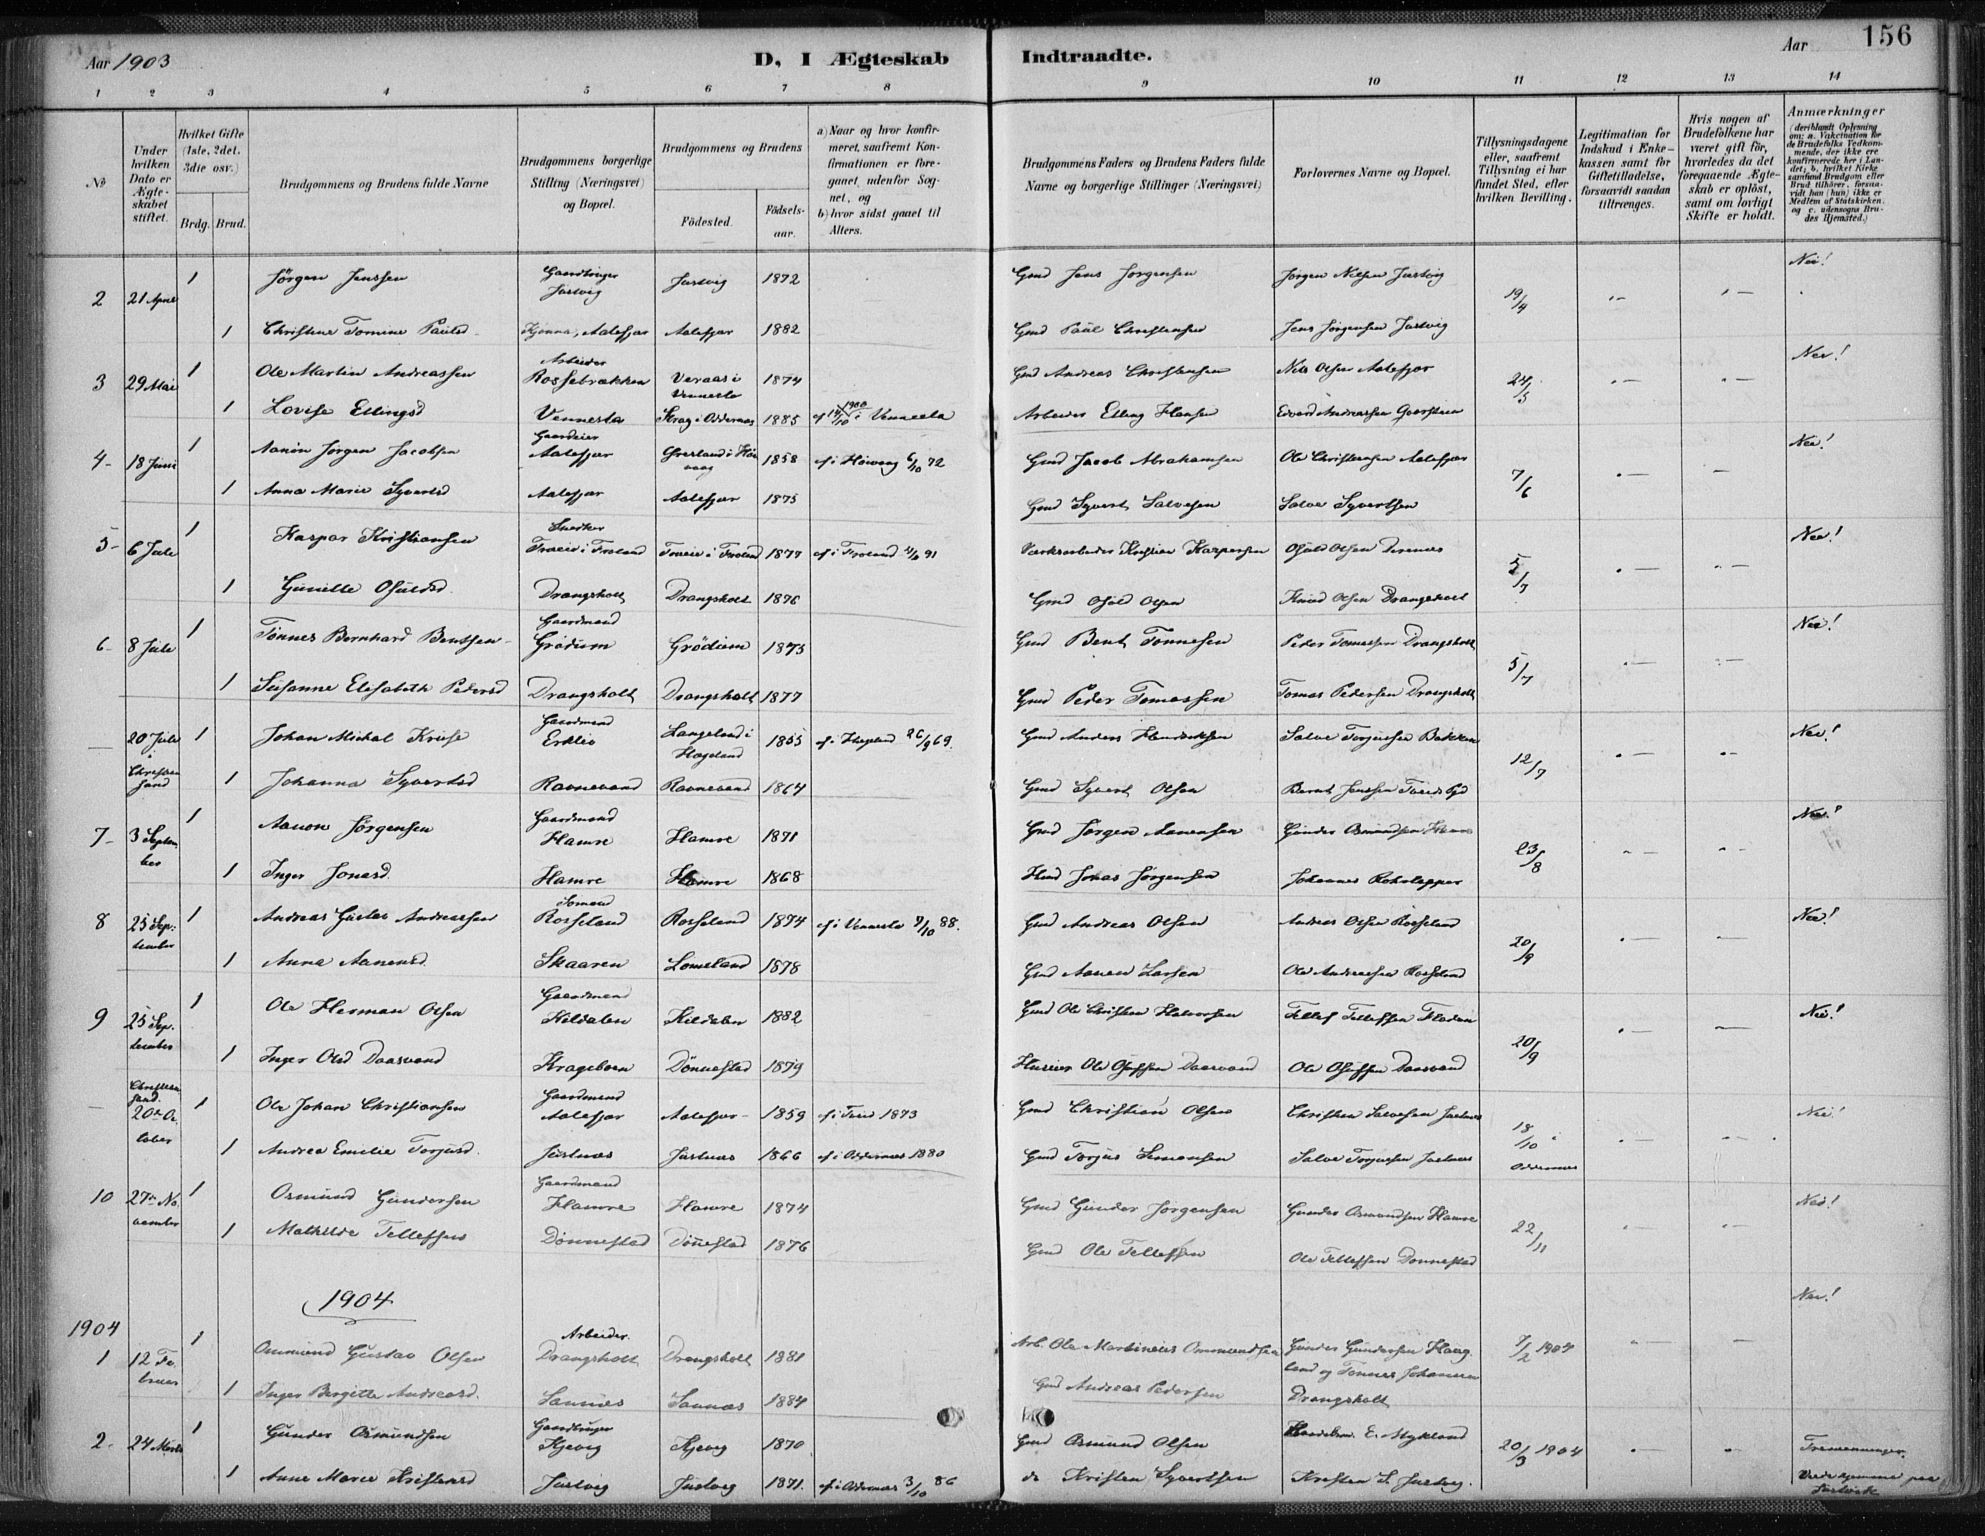 Aar 1903
D. I Ægteskab Indtraadte.
Aar
156
1 2 3 4 5 6 7 8 9 10 11 12 13 14
No
Under hvilken Dato er Ægteskabet stiftet.
Hvilket Gifte (1ste, 2det, 3die osv.)
Brdg. Brud.
Brudgommens og Brudens fulde Navne
Brudgommens borgerlige Stilling (Næringsvei) og Bopæl.
Brudgommens og Brudens
Fødested.
Fødselsaar.
a) Naar og hvor konfirmeret, saafremt Konfirmationen er foregaaet udenfor Sognet, og
b) hvor sidst gaaet til Alters.
Brudgommens Faders og Brudens Faders fulde Navne og borgerlige Stillinger (Næringsvei)
Forlovernes Navne og Bopæl.
Tillysningsdagene eller, saafremt Tillysning ei har fundet Sted, efter hvilken Bevilling.
Legitimation for Indskud i Enkekassen samt for Giftetilladelse, forsaavidt saadan tiltrænges.
Hvis nogen af Brudefolkene har været gift før, hvorledes da det foregaaende Ægteskab er opløst, samt om lovligt Skifte er holdt.
Anmærkninger
(deriblandt Oplysning om: a. Vakcination for de Brudefolks Vedkommende, der ikke ere konfirmerede her i Landet; b. hvilket Kirkesamfund Brudgom eller Brud tilhører, forsaavidt han (hun) ikke er Medlem af Statskirken, og c. udensogns Brudes Hjemsted.)
2 21 April 1 Jørgen Jenssen Gaardbruger Justvig Justvig 1872 Gmd Jens Jørgensen Jørgen Nilsen Justvig 19/4 Nei!
1 Christine Tomine Paulsd Aalefjær Aalefjær 1882 Gmd Paul Christensen Jens Jørgensen Justvig
3 29 Mai 1 Ole Martin Andreassen Arbeider Rossebrækken Veraas i Vennesla 1874 Gmd Andreas Christensen Nils Olsen Aalefjær 24/5 Nei!
1 Lovise Ellingsd Vennesla Krag i Oddernes 1885 14/10 1900 i Vennesla Arbeider Elling Hansen Edvard Andreassen
4 18 Juni 1 Aanon Jørgen Jacobsen Gaardeier Aalefjær i Høivaag 1858 cf i Høivaag 6/10 72 Gmd Jacob Abrahamsen Ole Christensen Aalefjær 7/6 Nei!
1 Anna Marie Syvertsd Aalefjær Aalefjær 1875 Gmd Syvert Salvesen Salve Syvertsen
5 6 Juli 1 Kaspar Kristiansen Snedker i Froland i Froland 1877 cf i Froland 91 Kristian Kaspersen Osuld Olsen 5/7 Nei!
1 Gunille Osuldsd Drangsholt Drangsholt 1876 Gmd Osuld Olsen Knud Olsen Drangsholt
6 8 Juli 1 Tønnes Bernhard Bentsen Gaardmand Grødum Grødum 1873 Gmd Bent Tønnesen Peder Tomassen Drangsholt 5/7 Nei!
1 Susanne Elisabeth Pedersd Drangsholt Drangsholt 1877 Gmd Peder Tomassen Tomas Pedersen Drangsholt
— 20 Juli Christiansand 1 Johan Michal Kruse Gaardmand Erklev Langeland i Hægeland 1855 cf i Hægeland 26/9 69. Gmd Anders Hendriksen Salve Torjussen Bakken 12/7 Nei!
1 Johanna Syvertsd Ravnevand Ravnevand 1864 Gmd Syvert Olsen Bernt Jenssen
7 3 September 1 Aanon Jørgensen Gaardmand Hamre Hamre 1871 Gmd Jørgen Aanensen Gunder Osmundsen Hamre 23/8 Nei!
1 Inger Jonasd Hamre Hamre 1868 Jonas Jørgensen Johannes
8 25 September 1 Andreas Gustav Andreassen Sømand Rosseland Rosseland 1874 cf i Vennesla 9/10 88. Gmd Andreas Olsen Andreas Olsen Rosseland 20/9 Nei!
1 Anna Aanensd. Skaaren Lomeland 1878 Gmd Aanen Larsen Ole Andreassen Rosseland
9 25 September 1 Ole Herman Olsen Gaardmand Kildalen Kildalen 1882 Gmd Ole Christian Halvorsen Tellef Tellefsen 20/9 Nei!
1 Inger Olsd Daasvand Krageboen Dønnestad 1879 Husmand Ole Olufsen Daasvand Ole Olufsen Daasvand
— Christiansand 20de October 1 Ole Johan Christiansen Gaardmand Aalefjær Aalefjær 1859 cf i Tveid 1873 Gmd Christian Olsen Christen Salvesen Justnes 18/10 i Oddernes Nei!
1 Andrea Emelie Torjusd. Justnæs Justnæs 1866 cf i Oddernæs 1880 Gmd Torjus Simonsen Salve Torjussen Justnæs
10 27de November 1 Osmund Gundersen Gaardmand Hamre Hamre 1874 Gmd Gunder Jørgensen Gunder Osmundsen Hamre 22/11 Nei!
1 Mathilde Tellefsen Dønnestad Dønnestad 1876 Gmd Ole Tellefsen Ole Tellefsen Dønnestad
1904
1904
1 12 Februar 1 Ommund Gustav Olsen Arbeider Drangsholt Drangsholt 1881 Arb. Ole Martinius Ommundsen Gunder Gundersen Haugland og Tønnes Johannesen Drangsholt 7/2 1904 Nei!
1 Inger Bergitte Andreasd. Sannæs Sannæs 1884 Gmd Andreas Pedersen
2 24 Marts 1 Gunder Osmundsen Gaardbruger Kjevig Kjevig 1870 Gmd Osmund Olsen E. Mykland 20/3 1904 Tremenninger.
1 Anne Marie Kristensd Justvig Justvig 1871. cf i Oddernæs 3/10 86 do Kristen Syvertsen Kristen S. Justvig.